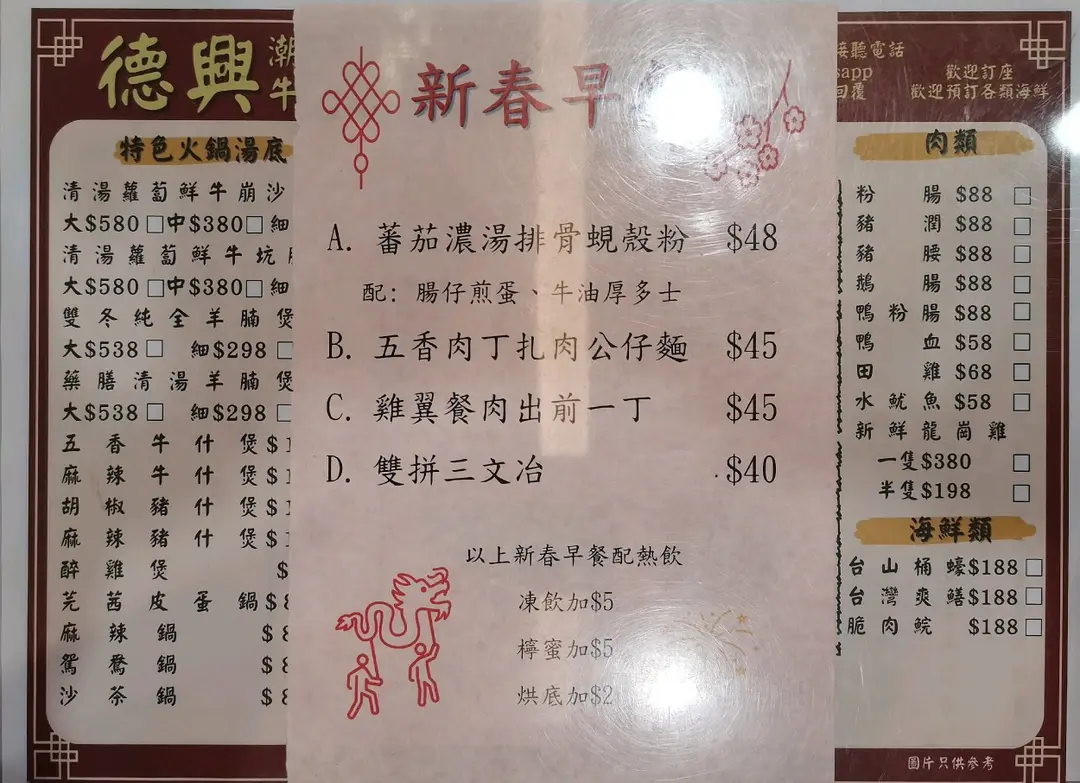 德興
潮
牛
特色火鍋湯底
清湯蘿蔔鮮牛崩沙
大$580 中$380 細
清湯蘿蔔鮮牛坑
大$580 中$380 細
雙冬純全羊腩煲
大$538 細$298
藥膳清湯羊腩煲
大$538 細$298
五香牛什煲$1
麻辣牛什煲$1
胡椒豬什煲$1
麻辣豬什煲$1
醉雞煲 $
芫茜皮蛋鍋$8
麻辣鍋 $8
鴛鴦鍋 $8
沙茶鍋 $8
新春早
A. 蕃茄濃湯排骨蜆殼粉 $48
配: 腸仔煎蛋、牛油厚多士
B. 五香肉丁扎肉公仔麵 $45
C. 雞翼餐肉出前一丁 $45
D. 雙拼三文冶 $40
以上新春早餐配熱飲
凍飲加$5
檸蜜加$5
烘底加$2
接聽電話
sapp
回覆
歡迎訂座
歡迎預訂各類海鮮
肉類
粉腸 $88
豬潤 $88
豬腰 $88
鵝腸 $88
鴨粉腸 $88
鴨血 $58
田雞 $68
水魷魚 $58
新鮮龍崗雞
一隻$380
半隻$198
海鮮類
台山桶蠔$188
台灣爽鱔$188
脆肉鯇 $188
圖片只供參考